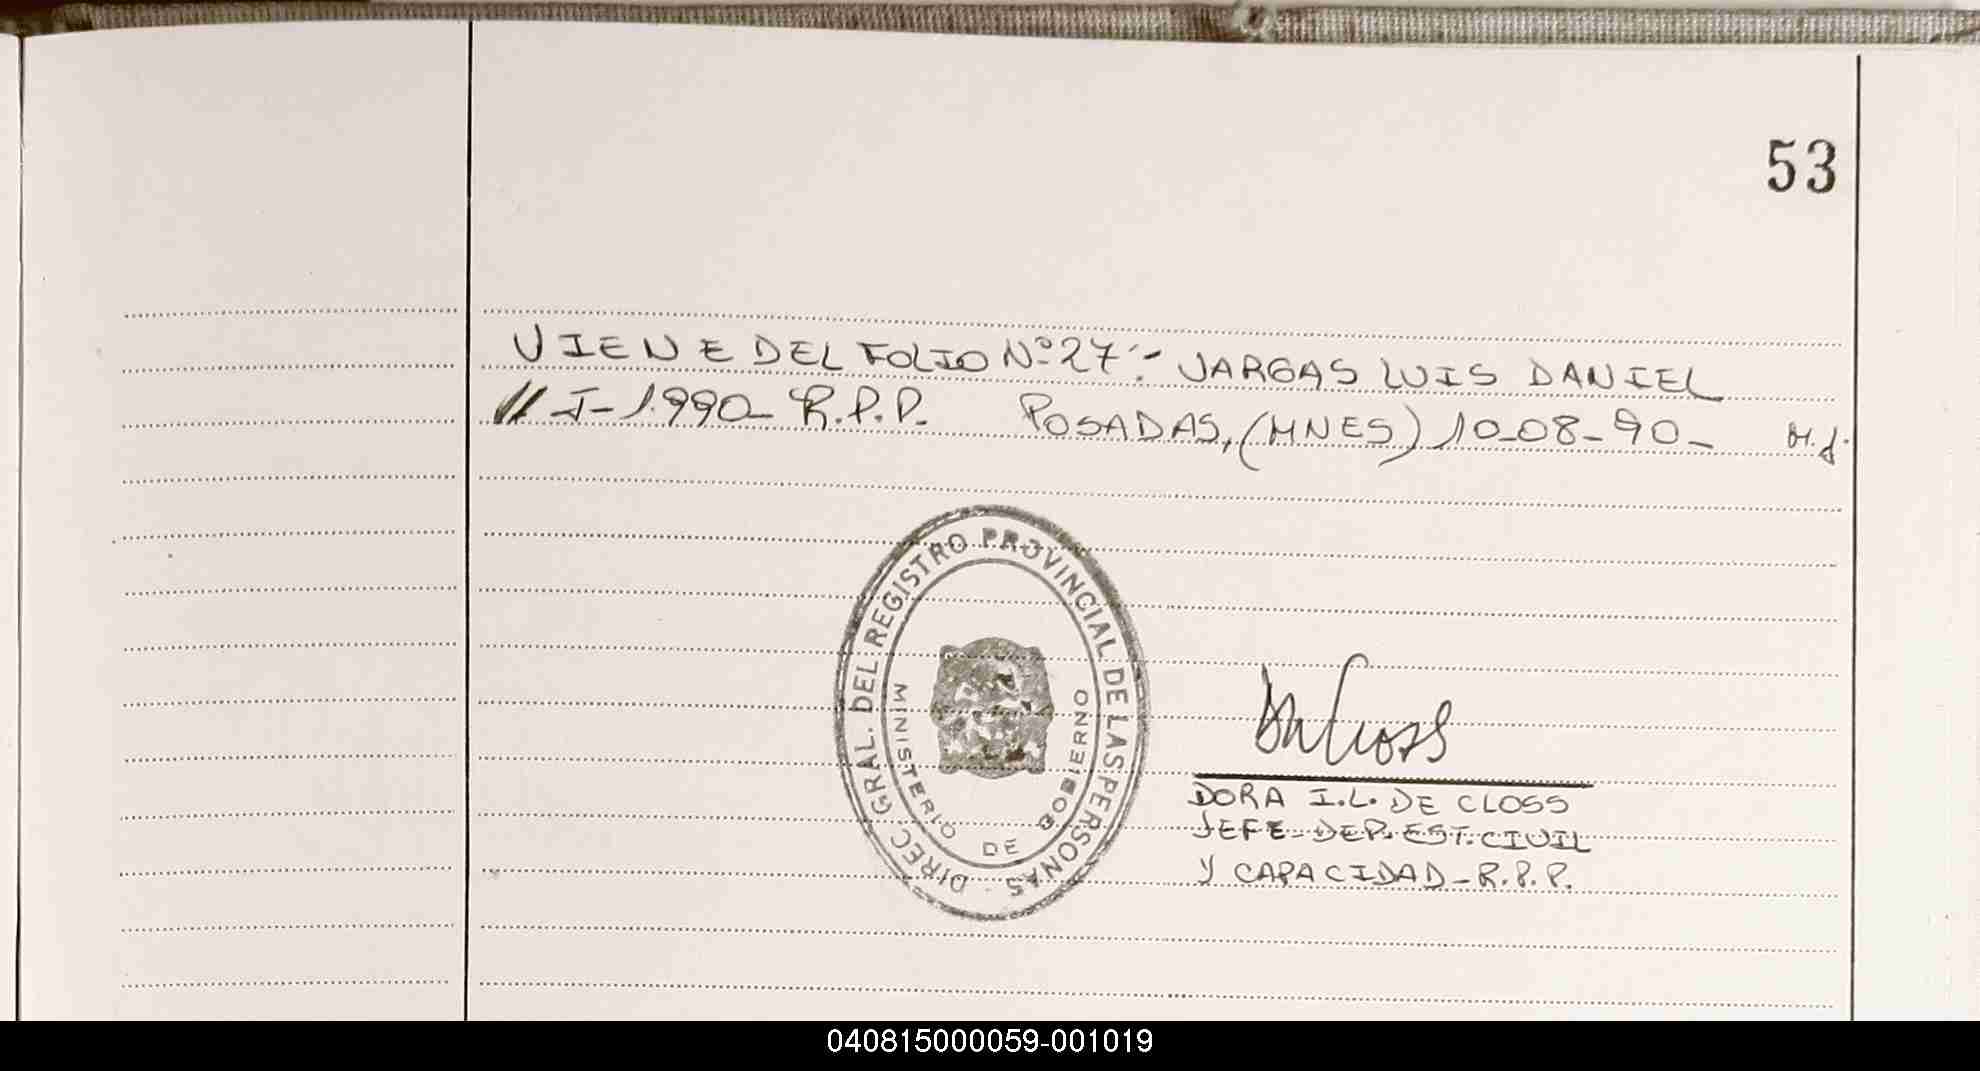 53
VIENE DEL FOLIO Nº 27:- VARGAS LUIS DANIEL
I-1.990- R.P.P. POSADAS, (MNES) 10-08-90-
DIREC. GRAL. DEL REGISTRO PROVINCIAL DE LAS PERSONAS
MINISTERIO DE GOBIERNO
DORA I.L. DE CLOSS
JEFE-DEP. EST. CIVIL
Y CAPACIDAD-R.P.P.
040815000059-001019